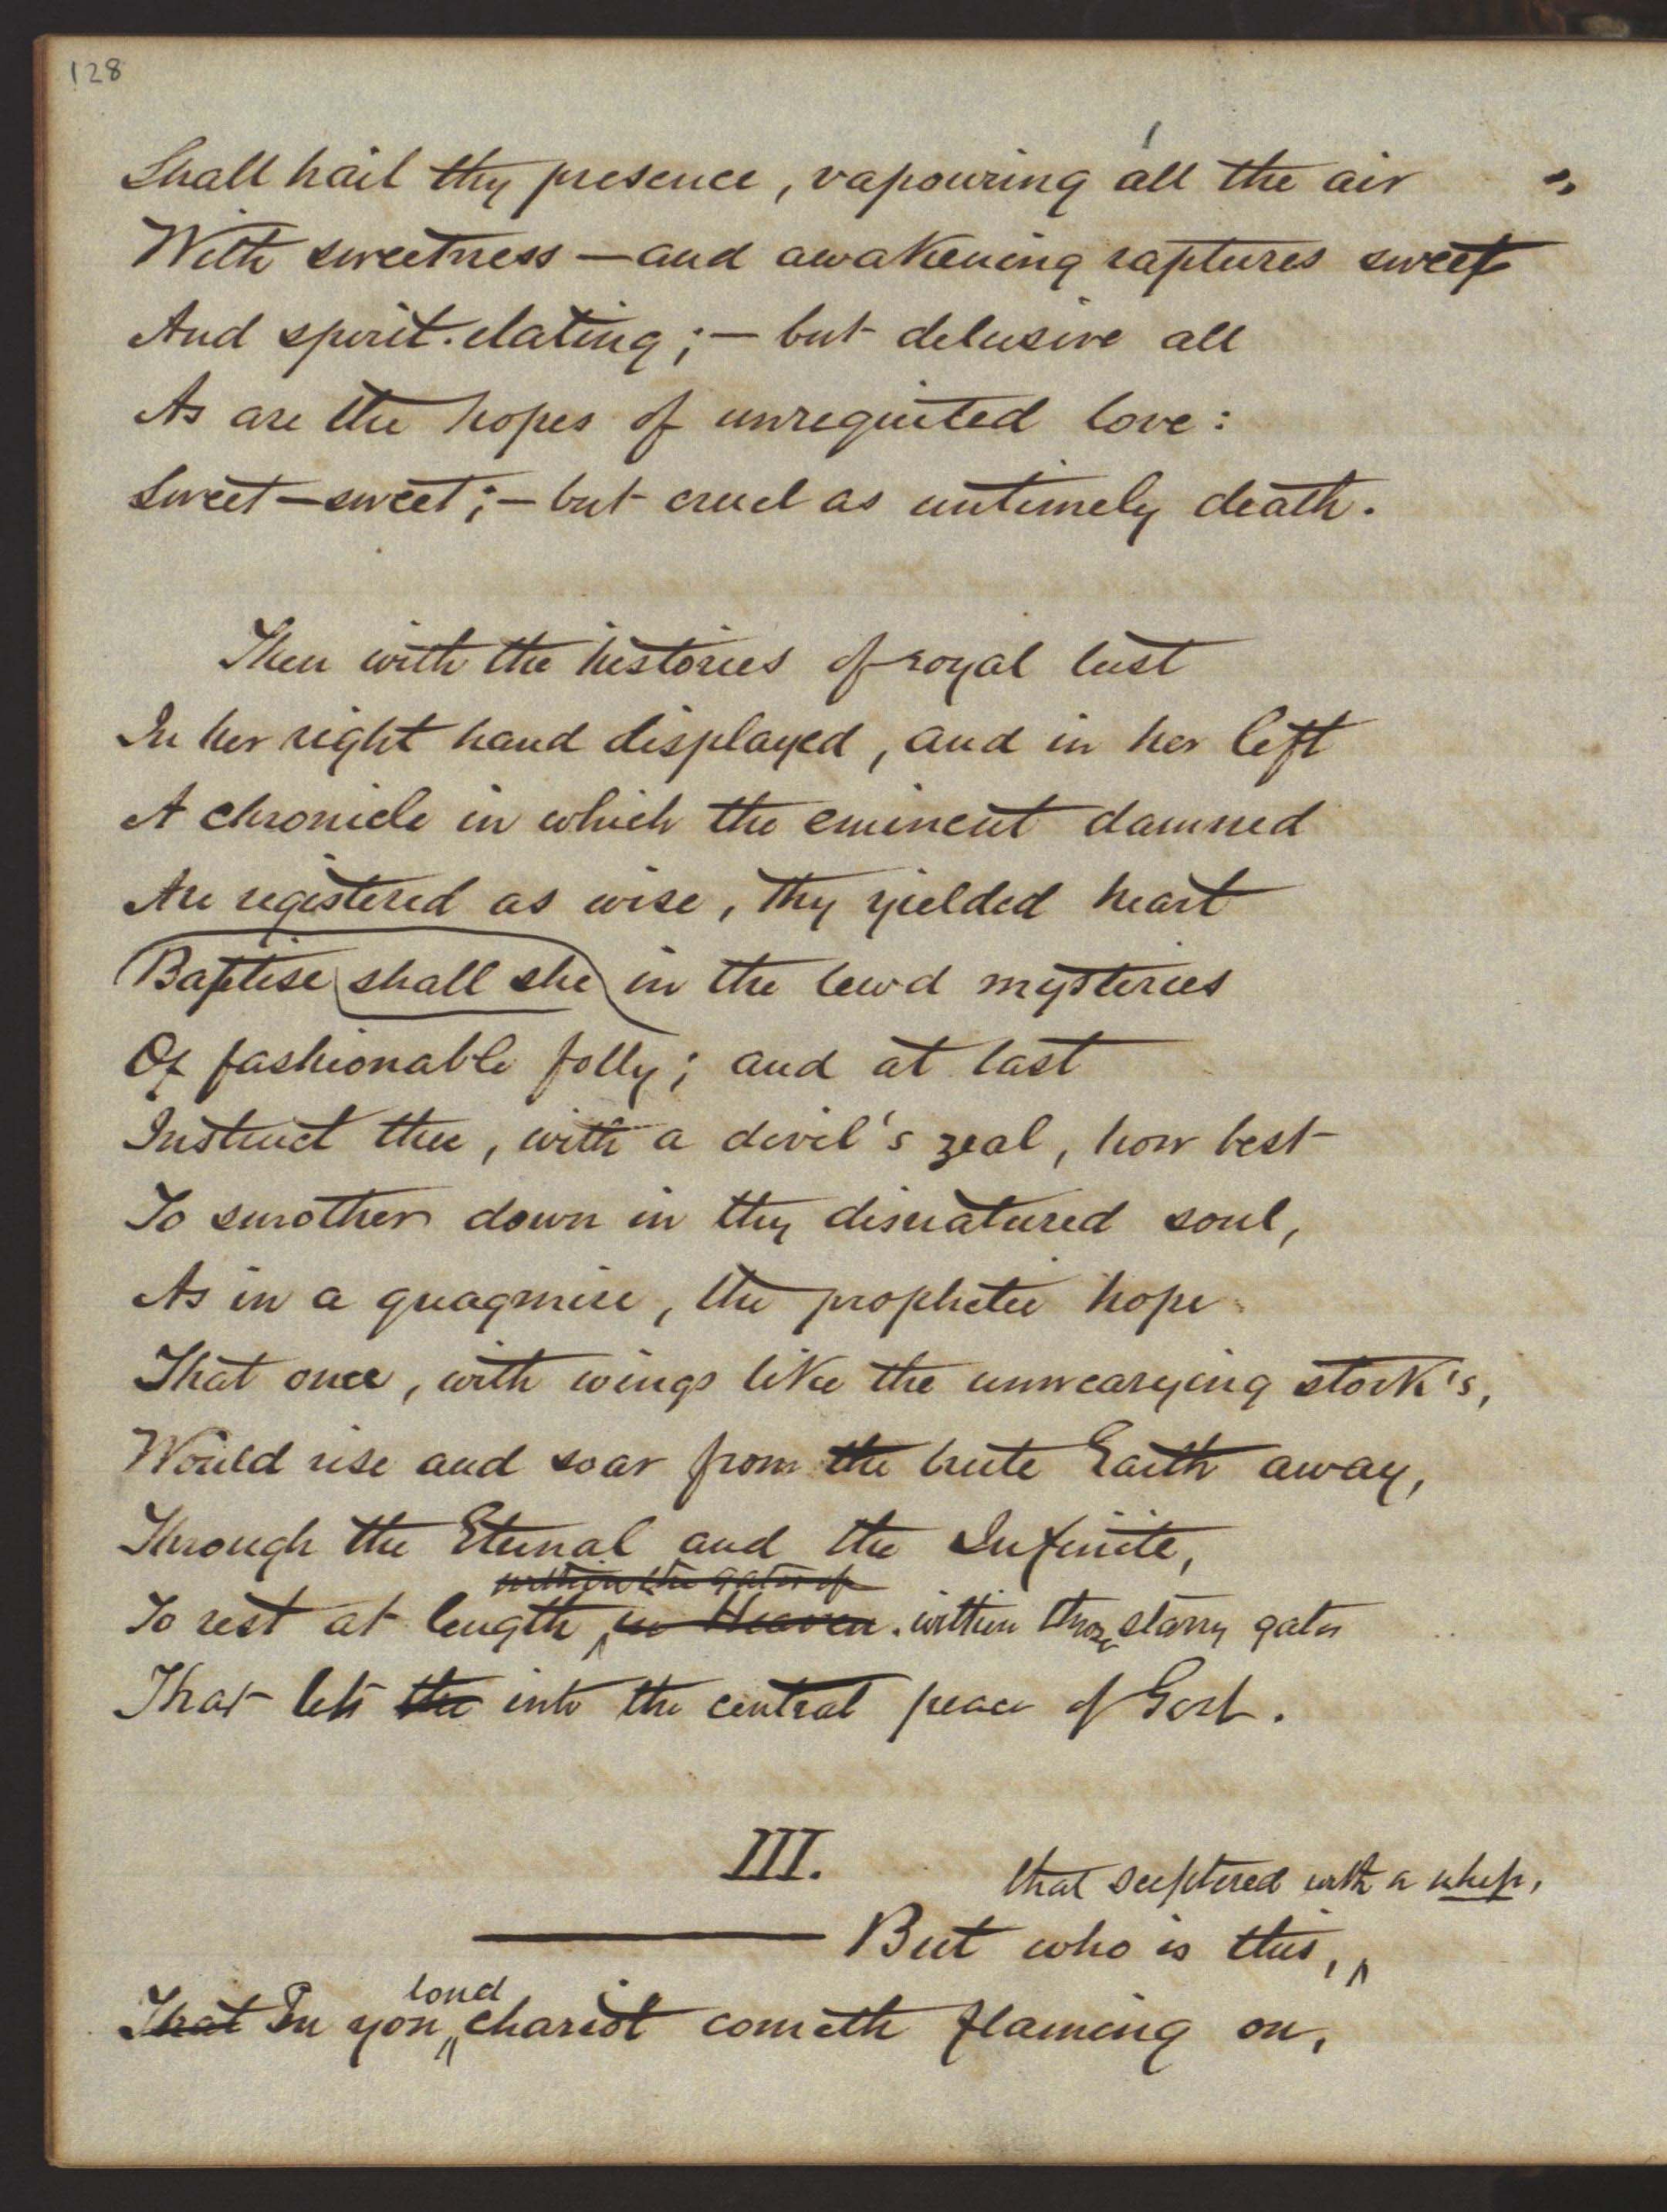 128
Shall hail thy presence, vapouring all the air
With sweetness — and awakening raptures sweet
And spirit-elating; — but delusive all
As are the hopes of unrequited love:
Sweet — sweet; — but cruel as untimely death.
Then with the histories of royal lust
In her right hand displayed, and in her left
A chronicle in which the eminent damned
Are registered as wise, thy yielded heart
Baptise shall she in the lewd mysteries
Of fashionable folly; and at last
Instruct thee, with a devil's zeal, how best
To smother down in thy disnatured soul,
As in a quagmire, the prophetic hope
That once, with wings like the unwearying stork's,
Would rise and soar from the brute Earth away,
Through the Eternal and the Infinite,
within the gates of
To rest at length, in Heaven. within those starry gates
That lets thee into the central peace of God.
III.
that sceptered with a whip,
But who is this,
loud
That In yon chariot cometh flaming on,